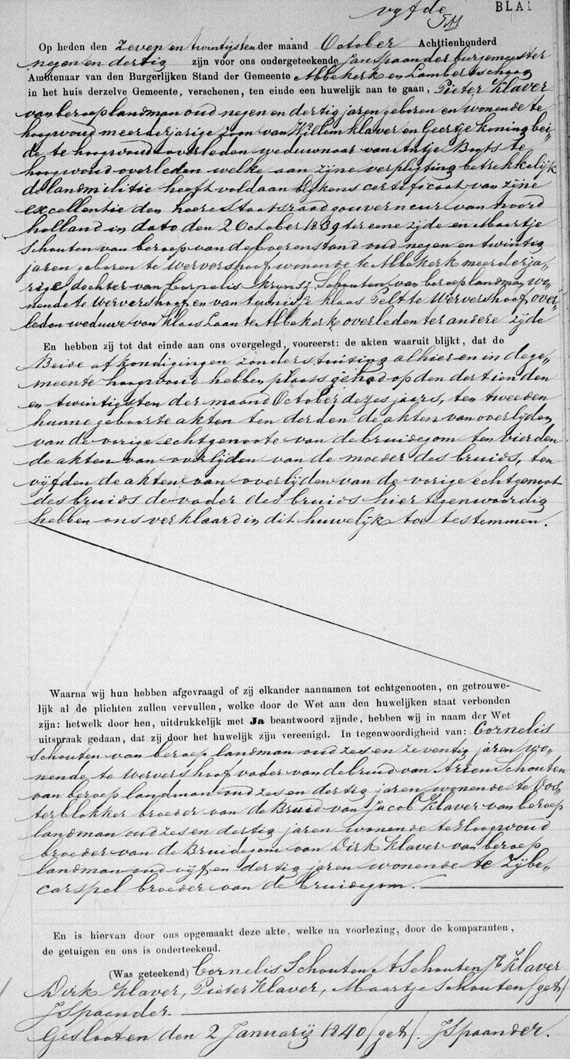 vyfde
BLAD
Op heden den zeven en twintigsten der maand October Achttienhonderd
negen en dertig zijn voor ons ondergeteekende Jan Spaander burgemeester
Ambtenaar van den Burgerlijken Stand der Gemeente Abbekerk en Lambertschaag
in het huis derzelve Gemeente, verschenen, ten einde een huwelijk aan te gaan, Pieter Klaver
van beroep landman oud negen en dertig jaren geboren en wonende te
hoogwoud meerderjarige zoon van Willem Klaver en Geertje Koning bei-
de te hoogwoud overleden weduwnaar van Antje te
hoogwoud overleden welke aan zijne verpligting betrekkelijk
de landmilitie heeft voldaan blykens certificaat van zijne
excellentie den heere staatsraad gouverneur van noord
holland in dato den 2 October 1839 ter eene zijde en Maartje
Schouten van beroep van de boerenstand oud negen en twintig
jaren geboren te Wervershoof wonende te Abbekerk meerderja-
rige dochter van Cornelis Schouten van beroep landman wo-
nende te Wervershoof en van Klaas te Wervershoof over-
leden weduwe van Klaas Laan te Abbekerk overleden ter andere zijde
En hebben zij tot dat einde aan ons overgelegd, vooreerst: de akten waaruit blijkt, dat de
Beide afkondigingen zonder stuiting alhier en in de ge-
meente hoogwoud hebben plaats gehad op den dertienden
en twintigsten der maand October dezes jaars, ten tweeden
hunne geboorte akten ten derden de akten van overlijden
van de vorige echtgenoote van de bruidegom ten vierden
de akten van overlijden van de moeder des bruids, ten
vijfden de akten van overlijden van de vorige echtgenoot
des bruids de vader des bruids hier tegenwoordig
hebben ons verklaard in dit huwelijk toe te stemmen.
Waarna wij hun hebben afgevraagd of zij elkander aannamen tot echtgenooten, en getrouwe-
lijk al de plichten zullen vervullen, welke door de Wet aan den huwelijken staat verbonden
zijn: hetwelk door hen, uitdrukkelijk met Ja beantwoord zijnde, hebben wij in naam der Wet
uitspraak gedaan, dat zij door het huwelijk zijn vereenigd. In tegenwoordigheid van: Cornelis
Schouten van beroep landman oud zes en zeventig jaren wo-
nende te Wervershoof vader van de bruid van Arien Schouten
van beroep landman oud zes en dertig jaren wonende te Oos-
terblokker broeder van de Bruid van Jacob Klaver van beroep
landman oud zes en dertig jaren wonende te Hoogwoud
broeder van de Bruidegom van Dirk Klaver van beroep
landman oud vijf en dertig jaren wonende te Zijbe-
carspel broeder van de bruidegom.
En is hiervan door ons opgemaakt deze akte, welke na voorlezing, door de komparanten,
de getuigen en ons is onderteekend.
(Was geteekend) Cornelis Schouten A Schouten Jb Klaver
Dirk Klaver, Pieter Klaver, Maartje Schouten (get)
J Spaander.
Gesloten den 2 Januarij 1840 (get). J Spaander.